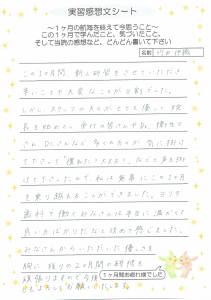 実習感想文シート
～1ヶ月の航海を終えて今思うこと～
この1ヶ月で学んだこと、気づいたこと、
そして当院の感想など、どんどん書いて下さい
名前
この1ヶ月間、新人研修をさせていただき
辛いことや大変なことがお
しかし、スタッフの方々がとても優しく、院
長を始めとし、受付の皆さんや
DCさんなど多くの方々が気に掛け
て下さって「慣れた？大丈夫？」などと声を掛
けて下さったので、私は無事にこの1ヶ月
を乗り越えることができました。ヨリタ
歯科で働くみなさんは本当に温かくて
良い方ばかりだなと改めて感じました。
みなさんからいただいた優しさを
胸に残りの2ヶ月の研修も
頑張りますので今後
よろしくお願いします。
1ヶ月間お疲れ様でした